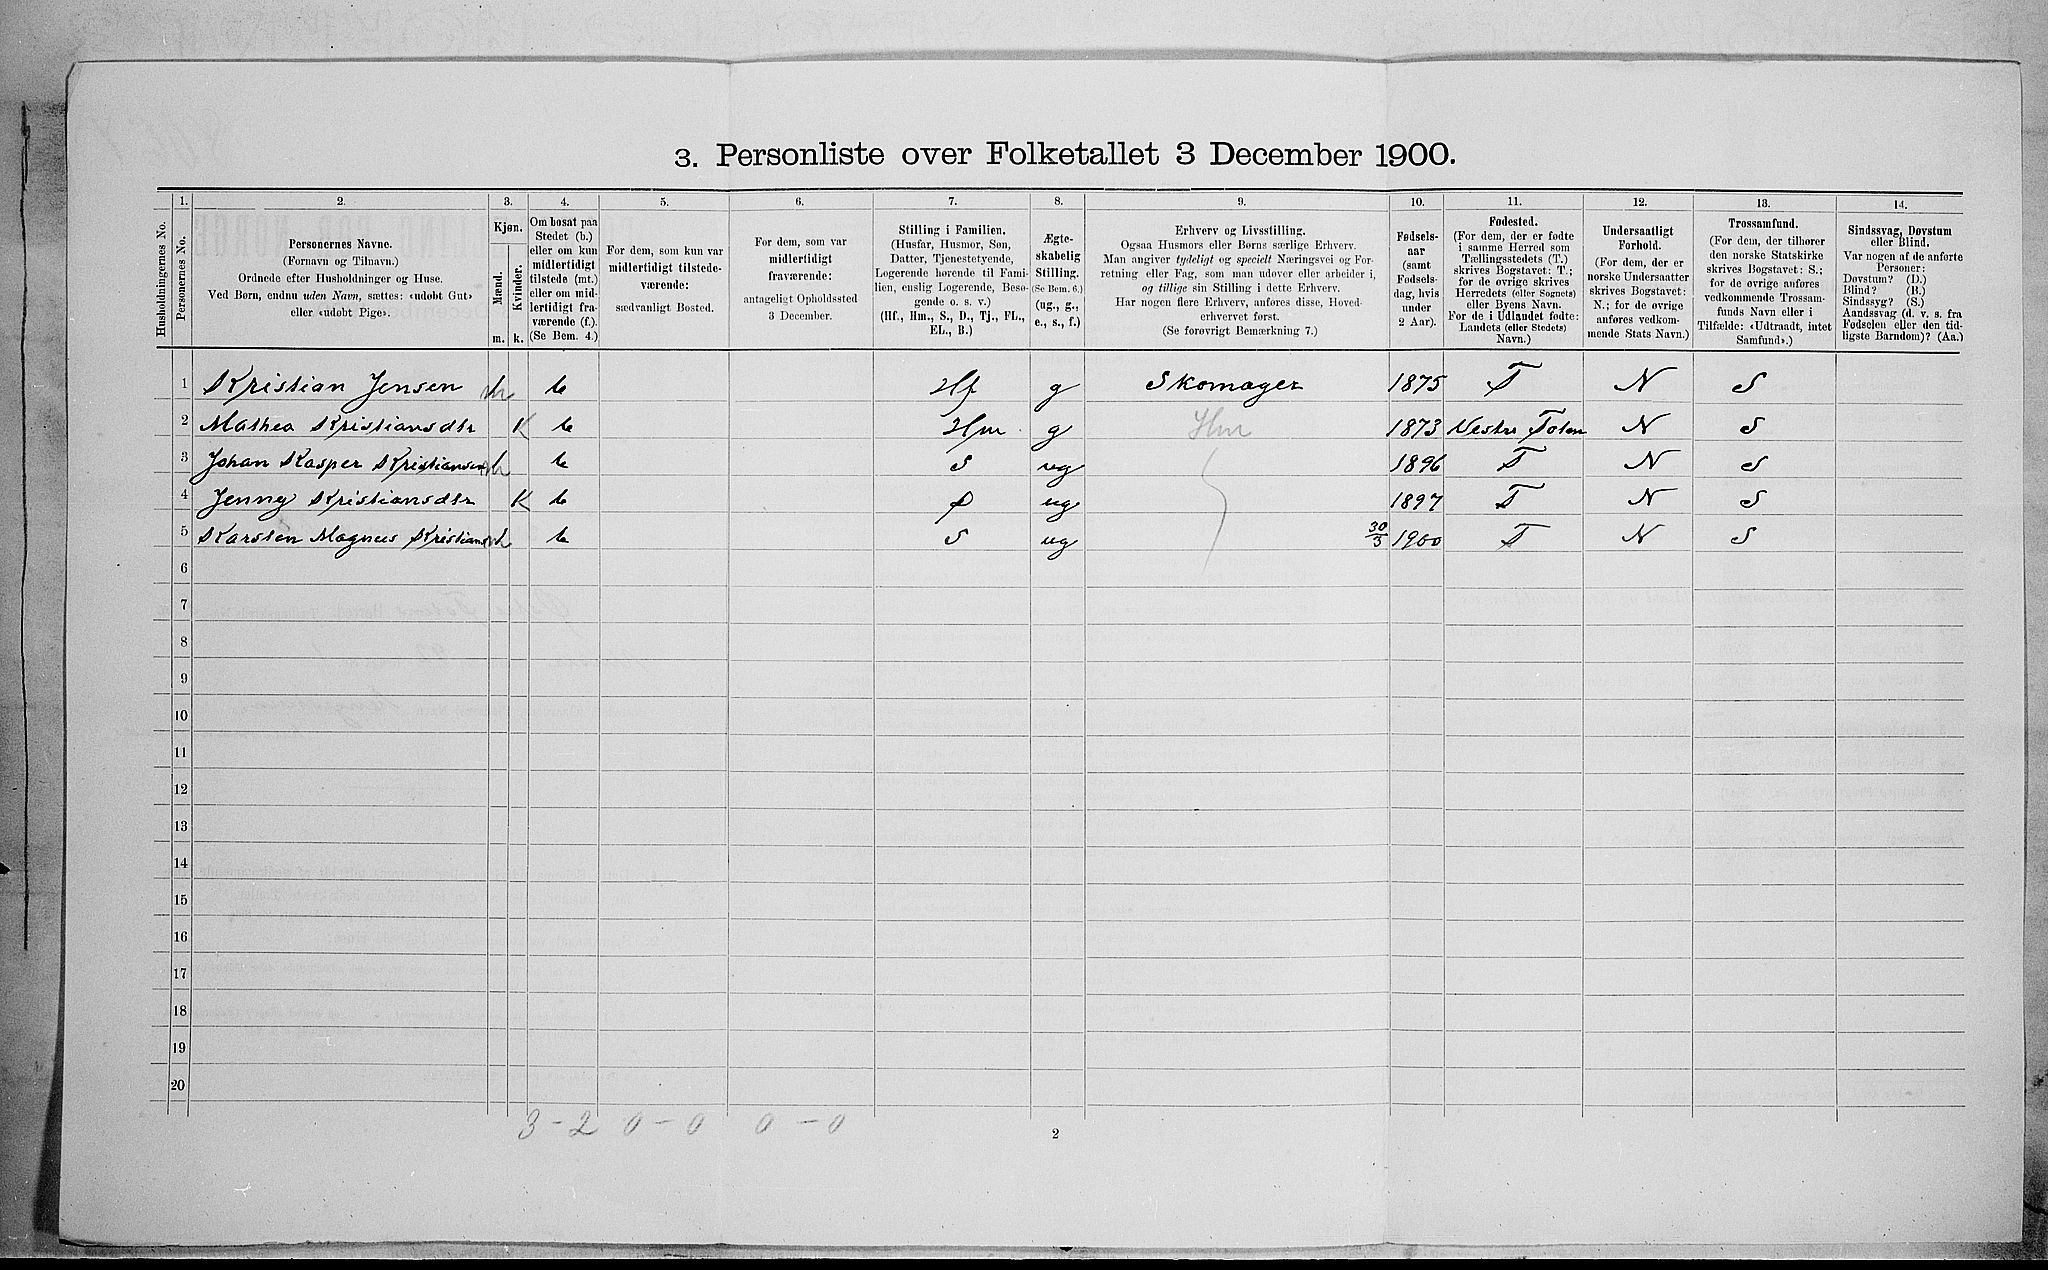 3. Personliste over Folketallet 3 December 1900.
1. 2. 3. 4. 5. 6. 7. 8. 9. 10. 11. 12. 13. 14.
Husholdningernes No.
Personernes No.
Personernes Navne.
(Fornavn og Tilnavn.)
Ordnede efter Husholdninger og Huse.
Ved Børn, endnu uden Navn, sættes: «udøbt Gut»
eller «udøbt Pige».
Kjøn.
Mænd.
Kvinder.
m. k.
Om bosat paa
Stedet (b.)
eller om kun
midlertidigt
tilstede (mt.)
eller om mid-
lertidigt fra-
værende (f.)
(Se Bem. 4.)
For dem, som kun var
midlertidigt tilstede-
værende:
sædvanligt Bosted.
For dem, som var
midlertidigt
fraværende:
antageligt Opholdssted
3 December.
Stilling i Familien.
(Husfar, Husmor, Søn,
Datter, Tjenestetyende,
Logerende hørende til Fami-
lien, enslig Logerende, Besø-
gende o. s. v.)
(Hf., Hm., S., D., Tj., FL.,
EL., B.)
Ægte-
skabelig
Stilling.
(Se Bem. 6.)
(ug., g.,
e., s., f.)
Erhverv og Livsstilling.
Ogsaa Husmors eller Børns særlige Erhverv.
Man angiver tydeligt og specielt Næringsvei og For-
retning eller Fag, som man udøver eller arbeider i,
og tillige sin Stilling i dette Erhverv.
Har nogen flere Erhverv, anføres disse, Hoved-
erhvervet først.
(Se forøvrigt Bemærkning 7.)
Fødsels-
aar
(samt
Fødsels-
dag, hvis
under
2 Aar).
Fødested.
(For dem, der er fødte
i samme Herred som
Tællingsstedets (T.)
skrives Bogstavet: T.;
for de øvrige skrives
Herredets (eller Sognets)
eller Byens Navn.
For de i Udlandet fødte:
Landets (eller Stedets)
Navn.)
Undersaatligt
Forhold.
(For dem, der er
norske Undersaatter
skrives Bogstavet:
N.; for de øvrige
anføres vedkom-
mende Stats Navn.)
Trossamfund.
(For dem, der tilhører
den norske Statskirke
skrives Bogstavet: S.;
for de øvrige anføres
vedkommende Trossam-
funds Navn eller i
Tilfælde: «Udtraadt, intet
Samfund».)
Sindssvag, Døvstum
eller Blind.
Var nogen af de anførte
Personer:
Døvstum? (D.)
Blind? (B.)
Sindssyg? (S.)
Aandssvag (d. v. s. fra
Fødselen eller den tid-
ligste Barndom)? (Aa.)
1 Kristian Jensen m b Hf g Skomager 1875 T N S
2 Mathea Kristiansdtr K b Hm g Hm 1873 Vestre Toten N S
3 Johan Kasper Kristiansen m b S ug 1896 T N S
4 Jenny Kristiansdtr K b D ug 1897 T N S
5 Karsten Magnus Kristians m b S ug 30/3 1900 T N S
6
7
8
9
10
11
12
13
14
15
16
17
18
19
20
3 - 2 0 - 0 0 - 0
2